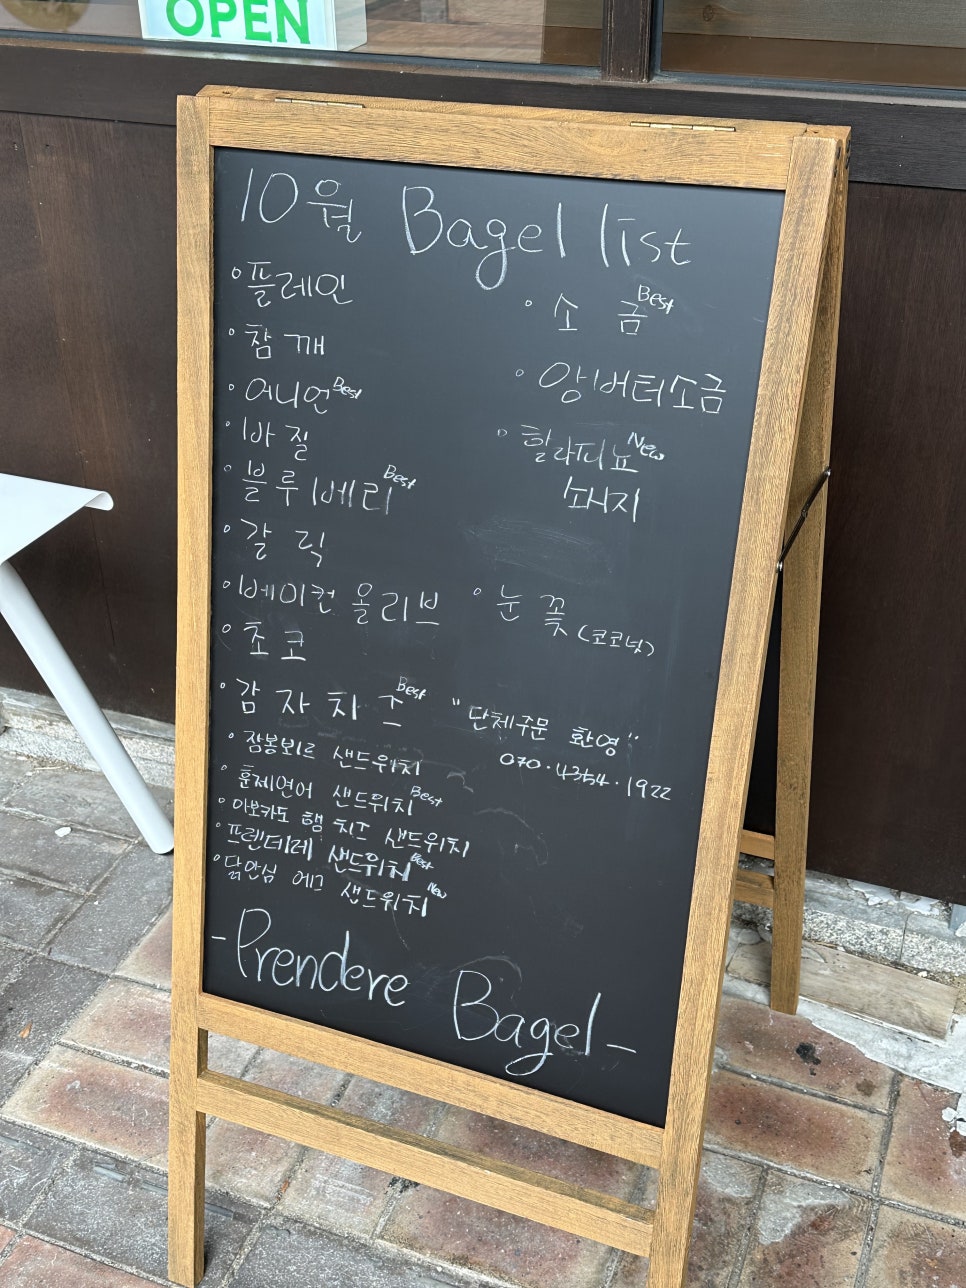 OPEN
10월 Bagel list
◦플레인
◦참깨
◦어니언 Best
◦바질
◦블루베리 Best
◦갈릭
◦베이컨 올리브
◦초코
◦감자치즈 Best
◦잠봉뵈르 샌드위치
◦훈제연어 샌드위치 Best
◦아보카도 햄 치즈 샌드위치
◦프렌데레 샌드위치 Best
◦닭안심 에그 샌드위치 New
◦소금 Best
◦앙버터소금
◦할라피뇨 New
소시지
◦눈꽃 (코코넛)
"단체주문 환영"
070·4354·1922
-Prendere Bagel-